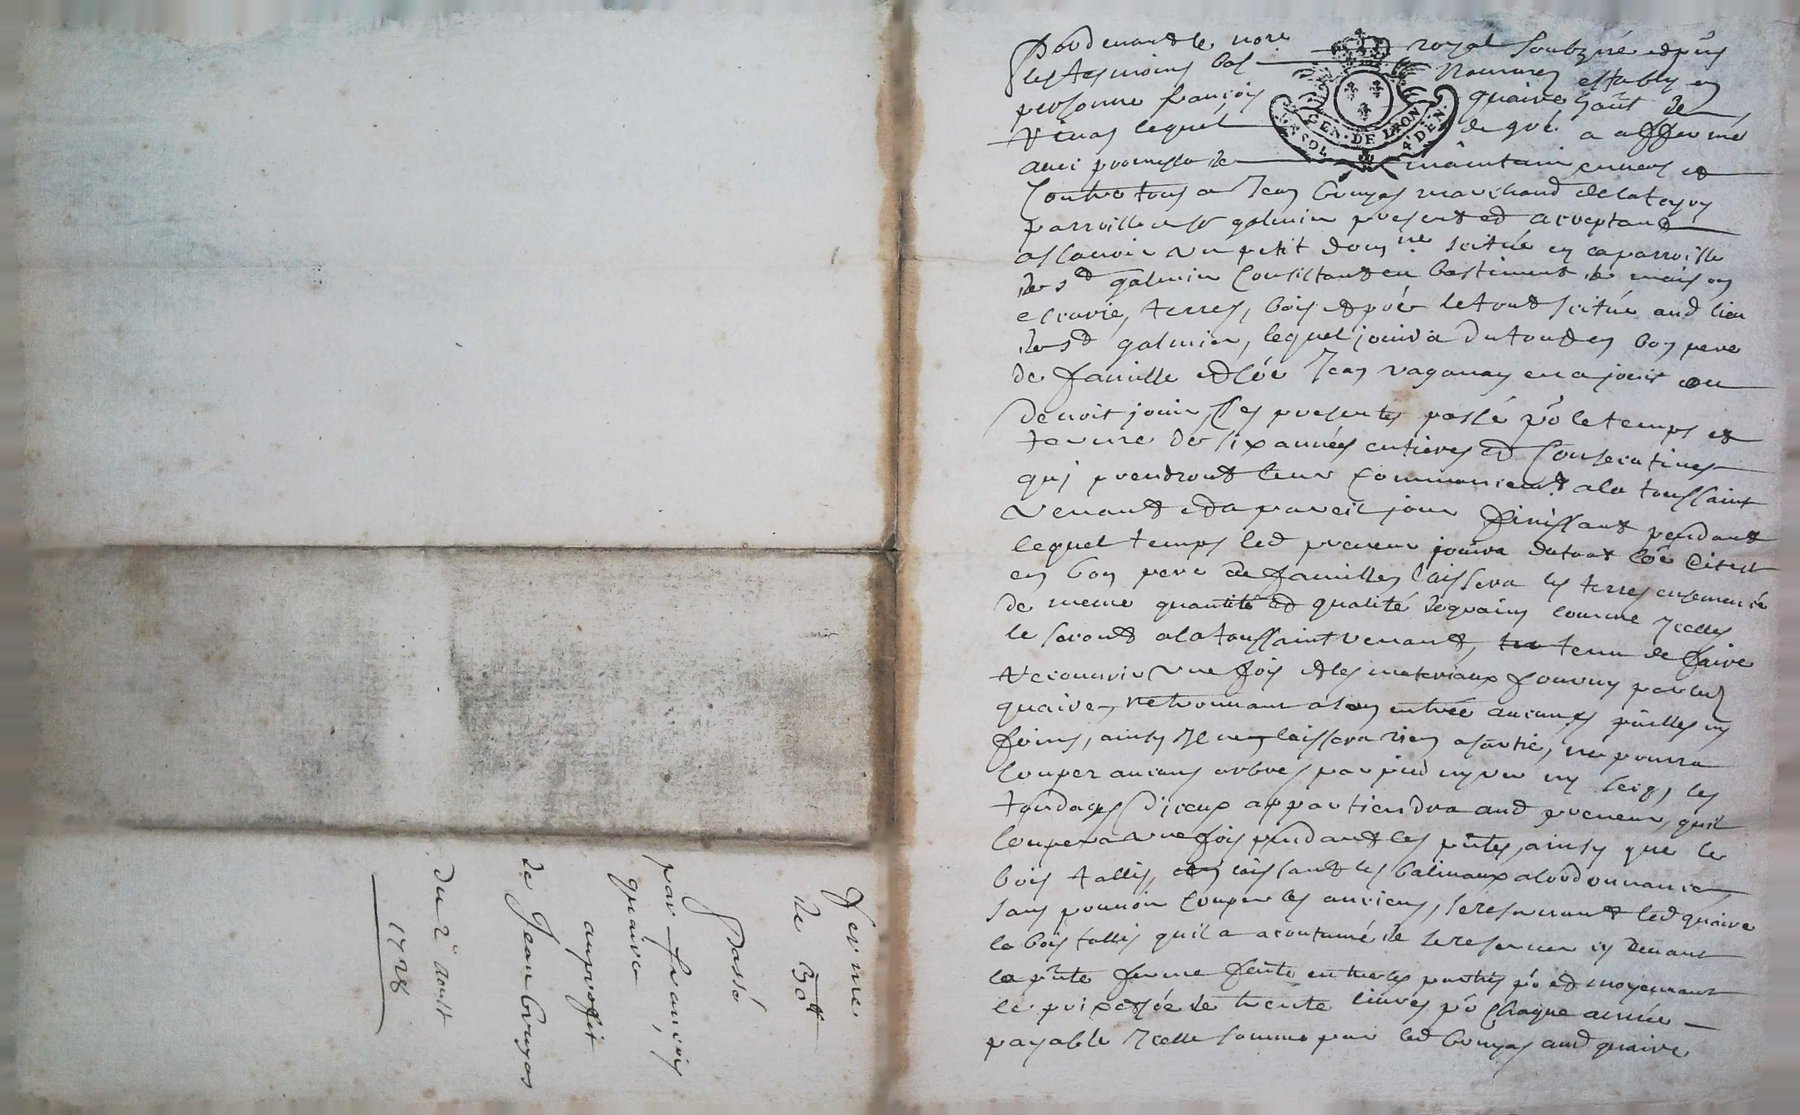 Pardevant le no.re royal soubz.né et p.ns
les tesmoins bas Nommez estably en
personne françois quaire
lequel de gré a affermé
avec promesse de maintenir envers et
Contre tous a Jean Gruyas marchand de
parroisse de s.t galmier present et acceptant
asscavoir un petit dom.ne scitué en la parroisse
de s.d galmier Consistant en bastiment de maison
escurie, terres, bois et pré le tout scitué aud lieu
de s.d galmier, lequel jouira du tout en bon pere
de famille et côe Jean vaganay en a jouit ou
devoit jouir, Ces presentes passé p.o le temps et
terme de six années entieres et Consecutives
qui prendront leur Commencem.t a la toussaint
Venant et a pareil jour finissant pendant
lequel temps led preneur jouira du tout côe dit est
en bon pere de famille, laissera les terres ensemencé
de meme quantité et qualité de grains comme Icelles
le seront a la toussaint venant, tenu de faire
recouvrir une fois et les materiaux fournis par led
quaire, ne trouvant a son entrée aucunes pailles ny
foins, ainsy Il ne laissera rien a sortie, ne pourra
Couper aucuns arbres par pied ny sur ny les
tondages d'iceux appartiendra aud preneur, quil
Coupera une fois pendant les p.ntes, ainsy que le
bois tallis, en laissant les balivaux a l'ordonnance
sans pouvoir Couper les anciens, se reservant led quaire
le bois tallis quil a acoutumé de se reserver cy devant
la p.nte ferme faite entre les parties p.o et moyennant
le prix et fée de trente livres p.o Chaque année
payable Icelle somme par led Gruyas aud quaire
GEN. DE LYON
Ferme
de 30 tt
Passé
par françois
quaire
au proffit
de Jean Gruyas
du 2 aoust
1728